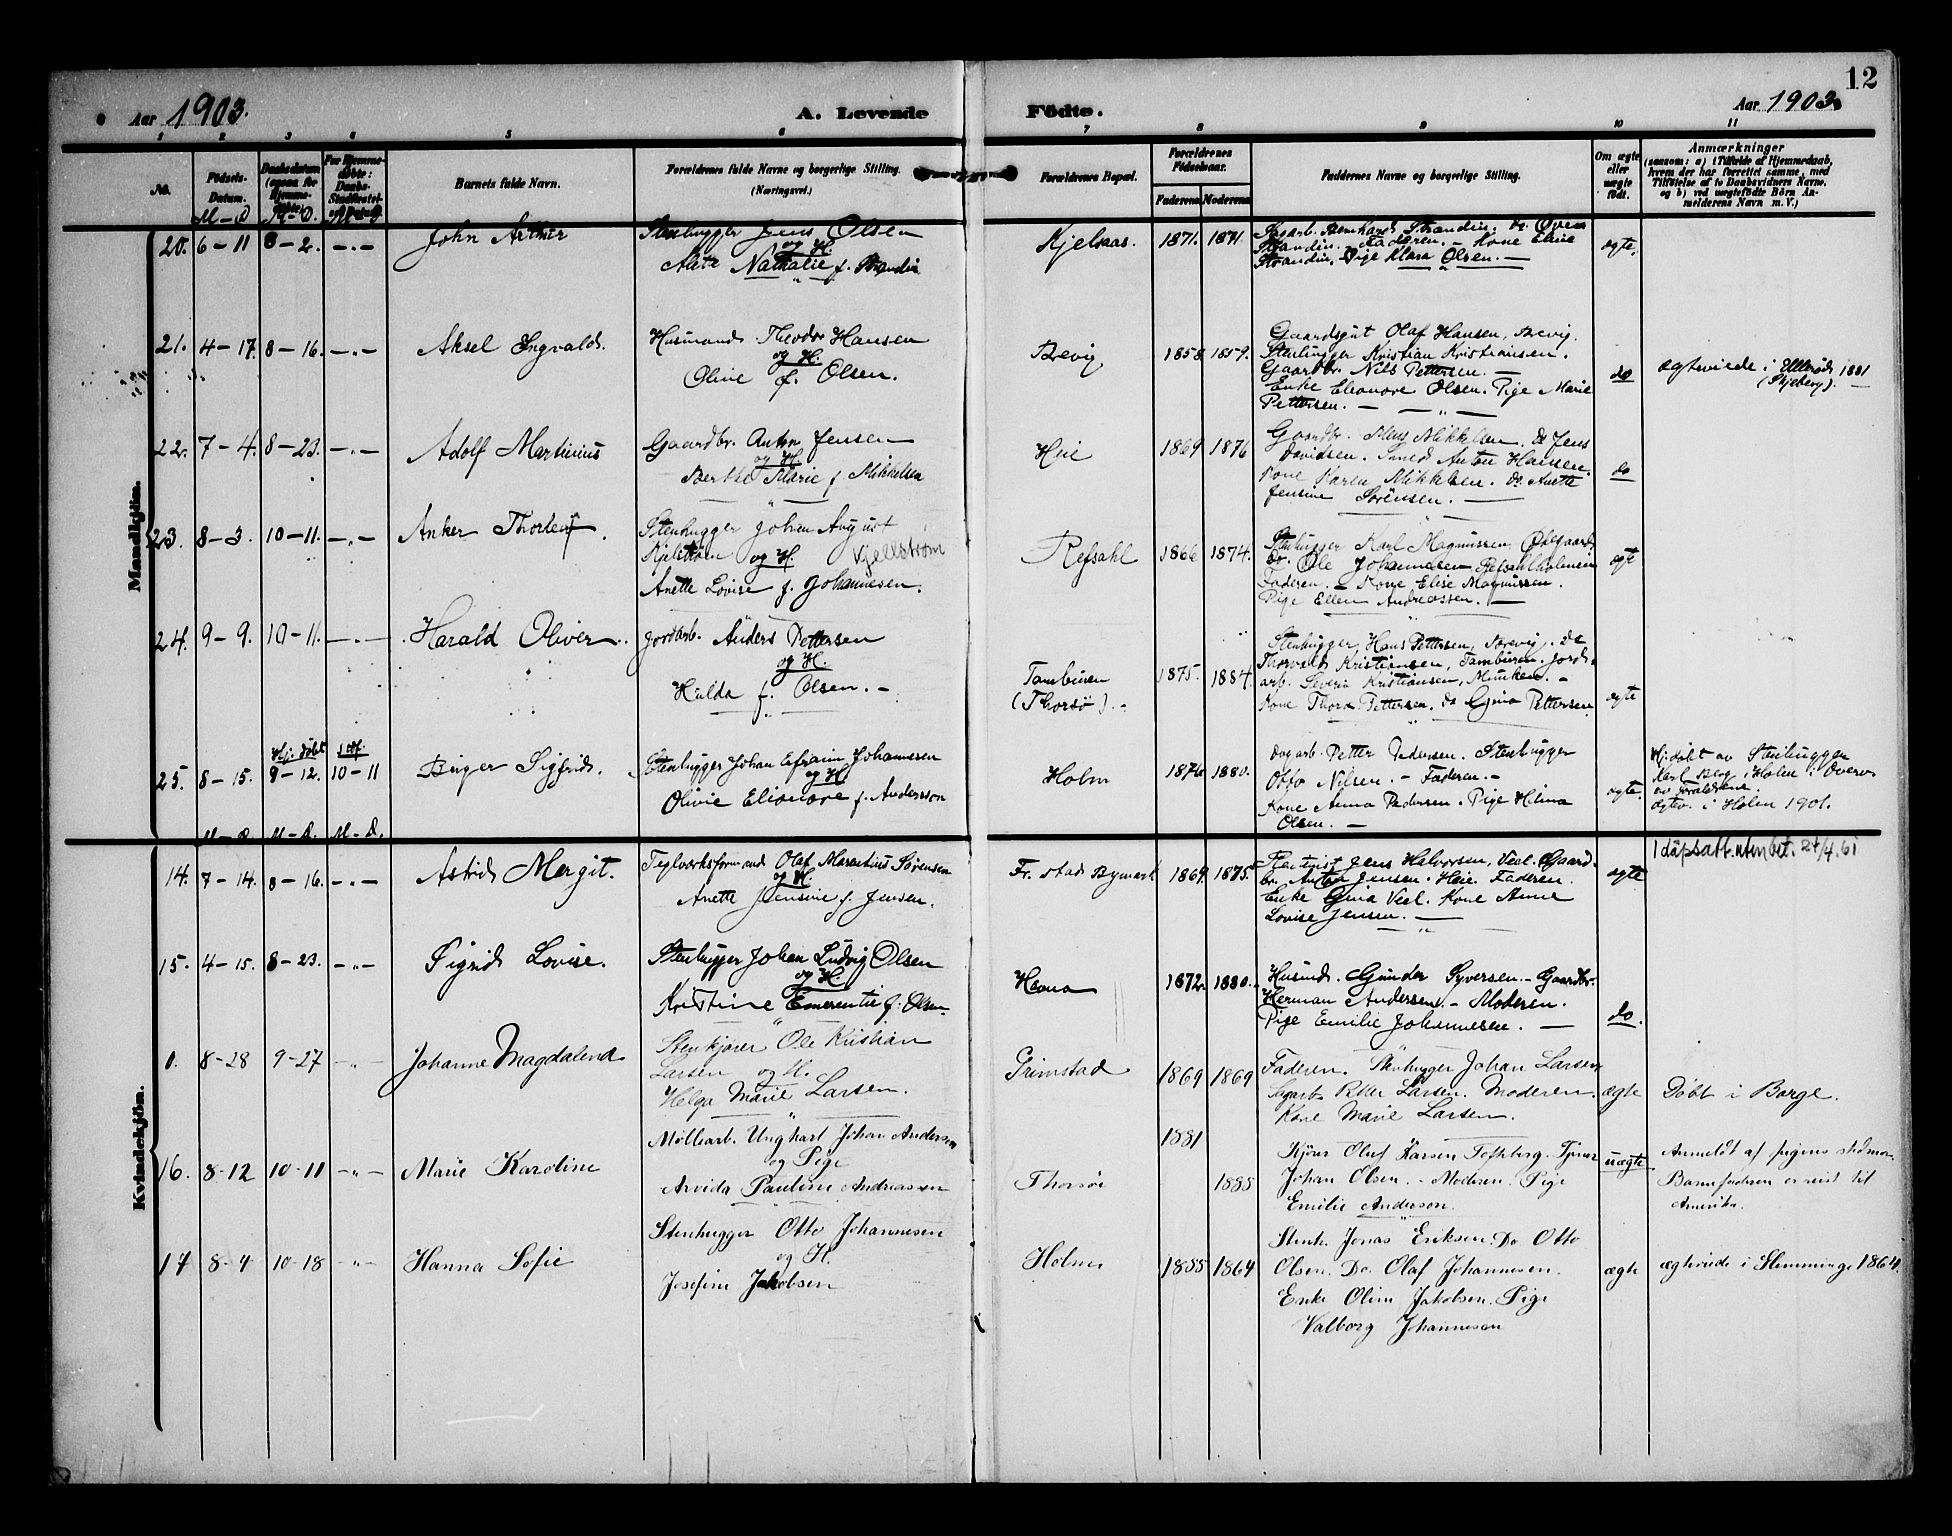 12
Aar 1903.
A. Levende Födte.
Aar 1903.
1 2 3 4 5 6 7 8 9 10 11
No.
Födsels-Datum.
Daabsdatum (ogsaa for Hjemmedöbte).
For Hjemmedöbte: Daabs-Stadfæstelsesdatum.
Barnets fulde Navn.
Forældrenes fulde Navne og borgerlige Stilling.
(Næringsvei.)
Forældrenes Bopæl.
Forældrenes Födselsaar.
Faderens Moderens
Faddernes Navne og borgerlige Stilling.
Om ægte eller uægte födt.
Anmærkninger
(saasom: a) i Tilfælde af Hjemmedaab,
hvem der har forrettet samme, med
Tilföielse af to Daabsvidners Navne,
og b) ved uægtefödte Börn An-
melderens Navn m. V.)
M–D M–D. M–D
Mandkjön.
20. 6–11 8–2. –„– John Arthur
Stenhugger Jens Olsen
og H.
Nathalie f. Strandin
Kjelsaas. 1871. 1871
Sagarb. Bernhard Strandin. do
Strandin. Faderen. – Kone Eline
Strandin, Pige Klara Olsen. –
ægte.
21. 4–17. 8–16. –„– Aksel Ingvald.
Husmand Theodor Hansen
og H.
Oline f. Olsen.
Brevig 1858 1859.
Gaardsgut Olaf Hansen, Brevig.
Stenhugger Kristian Kristiansen.
Gaardbr. Nils Pettersen. –
Enke Eleonore Olsen. Pige Marie
Pettersen. –
do
ægteviede i Ullerød 1881
(Skjeberg). –
22. 7–4. 8–23. –„– Adolf Martinius
Gaardbr. Anton Jensen
og H.
Berthe Marie f. Mikkelsen
Heie 1869 1876
Gaardbr. Mens Mikkelsen. do Jens
Davidsen. Smed Anton Hansen.
Kone Karen Mikkelsen. do Anette
Jensine Sörensen. –
do
23. 8–3. 10–11. –„– Anker Thorleif.
Stenhugger Johan August
Kjelström og H. Kjellstrøm
Anette Lovise f. Johannesen.
Refsahl 1866 1874.
Stenhugger Karl Magnussen,
br. Ole Johannesen, Refsahlholmen
Faderen. – Kone Elise Magnussen.
Pige Ellen Andreassen. –
ægte
24. 9–9. 10–11. –„– Harald Oliver.
Jordarb. Anders Pettersen
og H.
Hulda f. Olsen. –
Tamburen
(Thorsø). –
1875. 1884.
Stenhugger Hans Pettersen, Brevig. do
Thorvald Kristiansen, Tamburen. Jord-
arb. Severin Kristiansen, Munken. –
Kone Thora Pettersen. do Gina Pettersen
ægte
25. 8–15. Hj. döbt 9–12. 10–11 Birger Sigfrid.
Stenhugger Johan Efraim Johannesen
og H
Olivie Elionore f. Andersson
Holm 1876 1880.
Dagarb. Petter Pedersen. Stenhugger
Otto Nilsen. – Faderen. –
Kone Anna Pedersen. Pige Hilma
Olsen. –
ægte.
Hj. døbt av Stenhugger
Karl Berg i Holm i Overv.
av Forældrene.
ægtev. i Holen 1901.
M–D. M–D. M–D.
Kvindekjön.
14. 7–14. 8–16. –„– Astrid Margit.
Teglverksformand Olaf Marentius Sørensen
og H.
Anette Jensine f. Jensen.
Fr.stad Bymark 1869 1875
Jens Halvorsen, Veel. Gaard-
br. Anton Jensen. Heie. Faderen.
Enke Gina Veel. Kone Anne
Lovise Jensen. –
ægte
1 dåpsatt. uten bet. 24/4.61
15. 4–15. 8–23. –„– Sigrid Lovise.
Stenhugger Johan Ludvig Olsen
og H.
Kristine Emerentie f. Olsen
1872 1880.
Husmd. Gunder Syversen. – Gaardbr.
Herman Andersen. – Moderen.
Pige Emilie Johannesen. –
do.
0. 8–28 9–27 –„– Johanne Magdalene
Stenkjører Ole Kristian
Larsen og H.
Helga Marie Larsen.
Grimstad 1869 1869
Faderen. Stenhugger Johan Larsen
Sagarb. Petter Larsen. Moderen.
Kone Marie Larsen.
ægte
Døbt i Borge.
16. 8–12 10–11 –„– Marie Karoline
Møllearb. Ungkarl Johan Andersen
og Pige
Arvida Pauline Andreassen
Thorsøe 1881 1885
Kjører Oluf Karsen Tofteberg. Tjener
Johan Olsen. – Moderen. Pige
Emilie Anderson.
uægte
Anmeldt af pigens stedmor
Barnefaderen er reist til
Amerika.
17 8–4 10–18 –„– Hanna Sofie
Stenhugger Otto Johannesen
og H.
Josefine Jakobsen
Holmen 1855 1864
Stenh. Jonas Eriksen. Do Otto
Olsen. Do. Olaf Johannesen.
Enke Oline Jakobsen. Pige
Valborg Johannesen
ægte
ægteviede i Slemminge 1864.